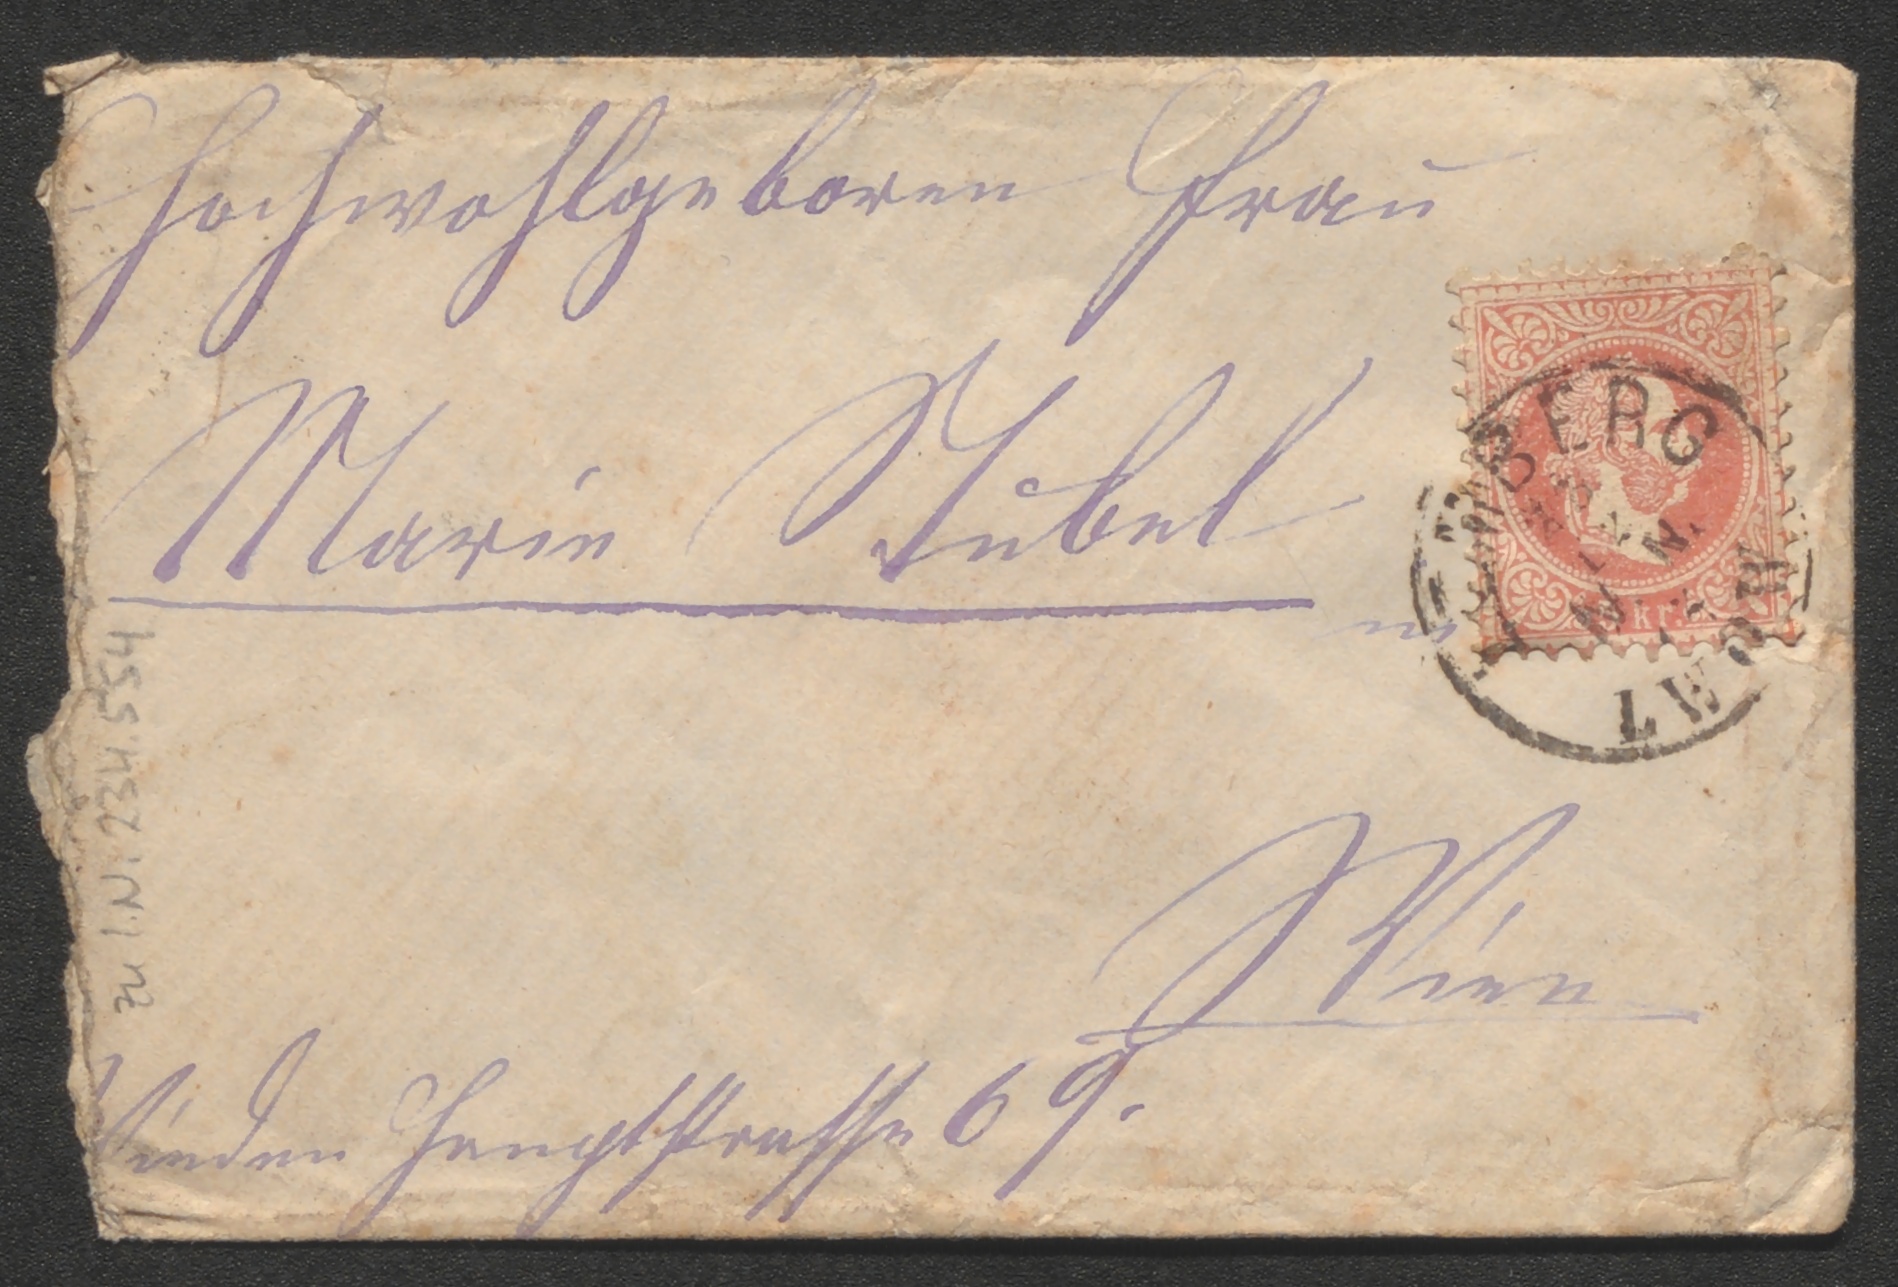 Hochwohlgeboren Frau
Marie Stubel
in
Wien
Wieden Hauptstrasse 69.
LEMBERG
LWOW
kr
zu I.N. 234.554